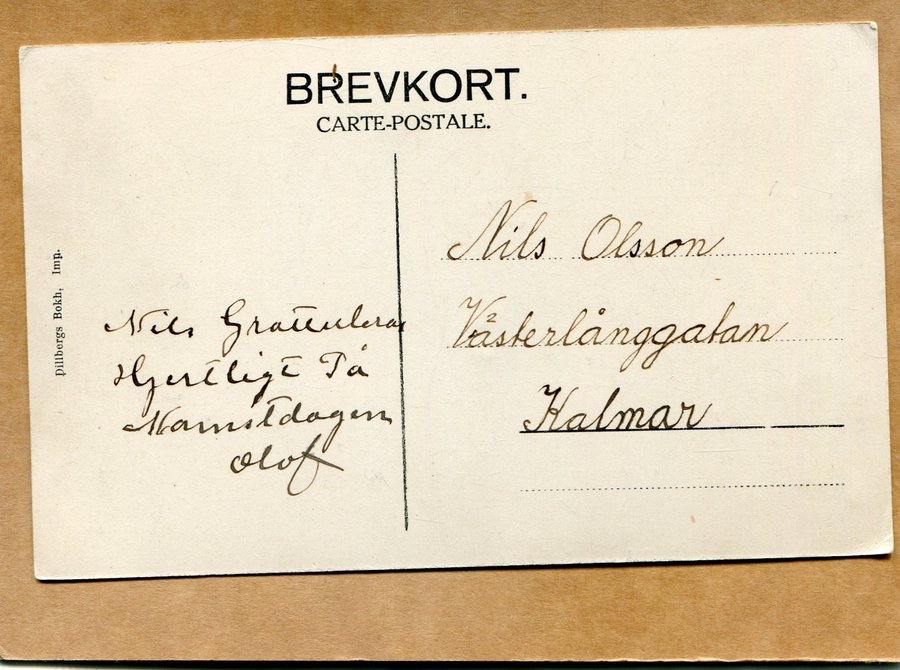 BREVKORT.
CARTE-POSTALE.
Dillbergs Bokh, Imp.
Nils Gratuleras
Hjertligt På
Namstdagen
Olof
Nils Olsson
Västerlånggatan
Kalmar